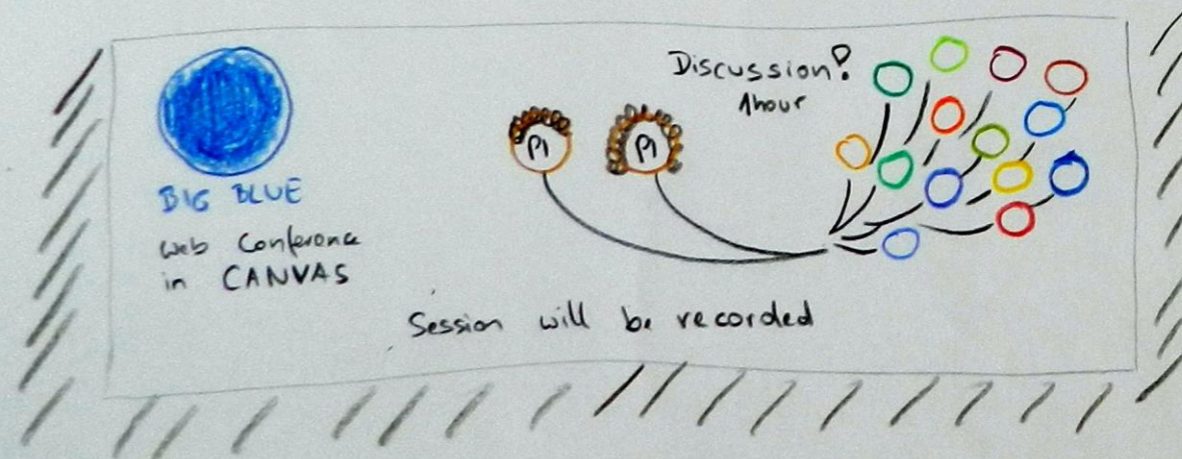 BIG BLUE
web Conference
in CANVAS
PI
PI
Discussion!
1hour
Session will be recorded